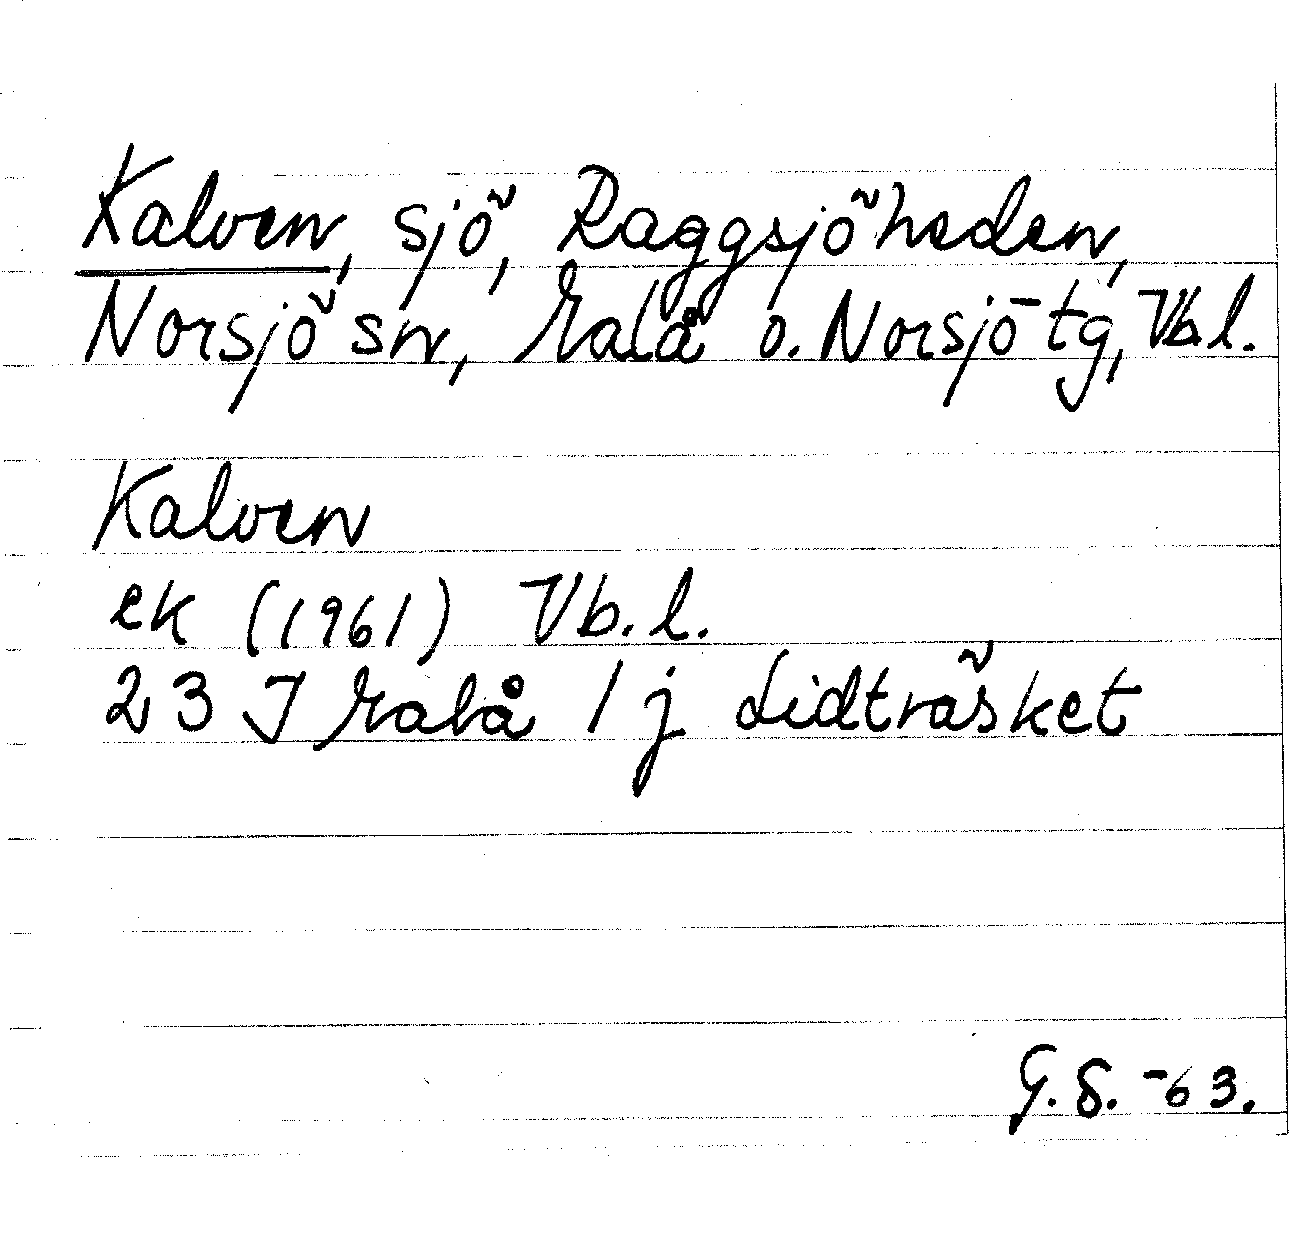 Kalven, sjö, Raggsjöheden,
Norsjö sn, Malå o. Norsjö tg, Vb.l.
Kalven
ek (1961) Vb.l.
23 J Malå 1 j Lidträsket
G.S. -63.